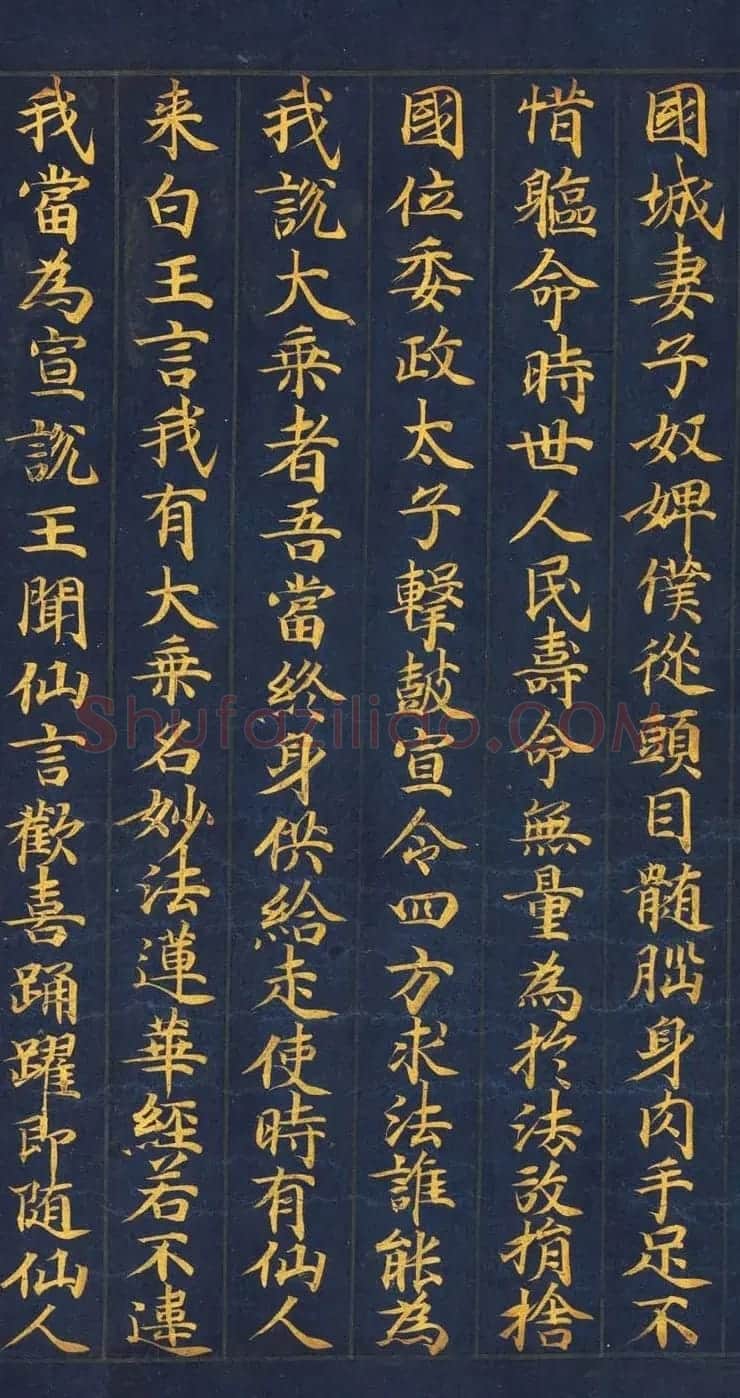 國城妻子奴婢僕從頭目髄𦛁身肉手足不
惜軀命時世人民壽命無量為扵法故捐捨
國位委政太子擊鼓宣令四方求法誰能為
我說大乗者吾當終身供給走使時有仙人
来白王言我有大乗名妙法蓮華經若不違
我當為宣說王聞仙言歡喜踊躍即随仙人
Shufaziliao.COM